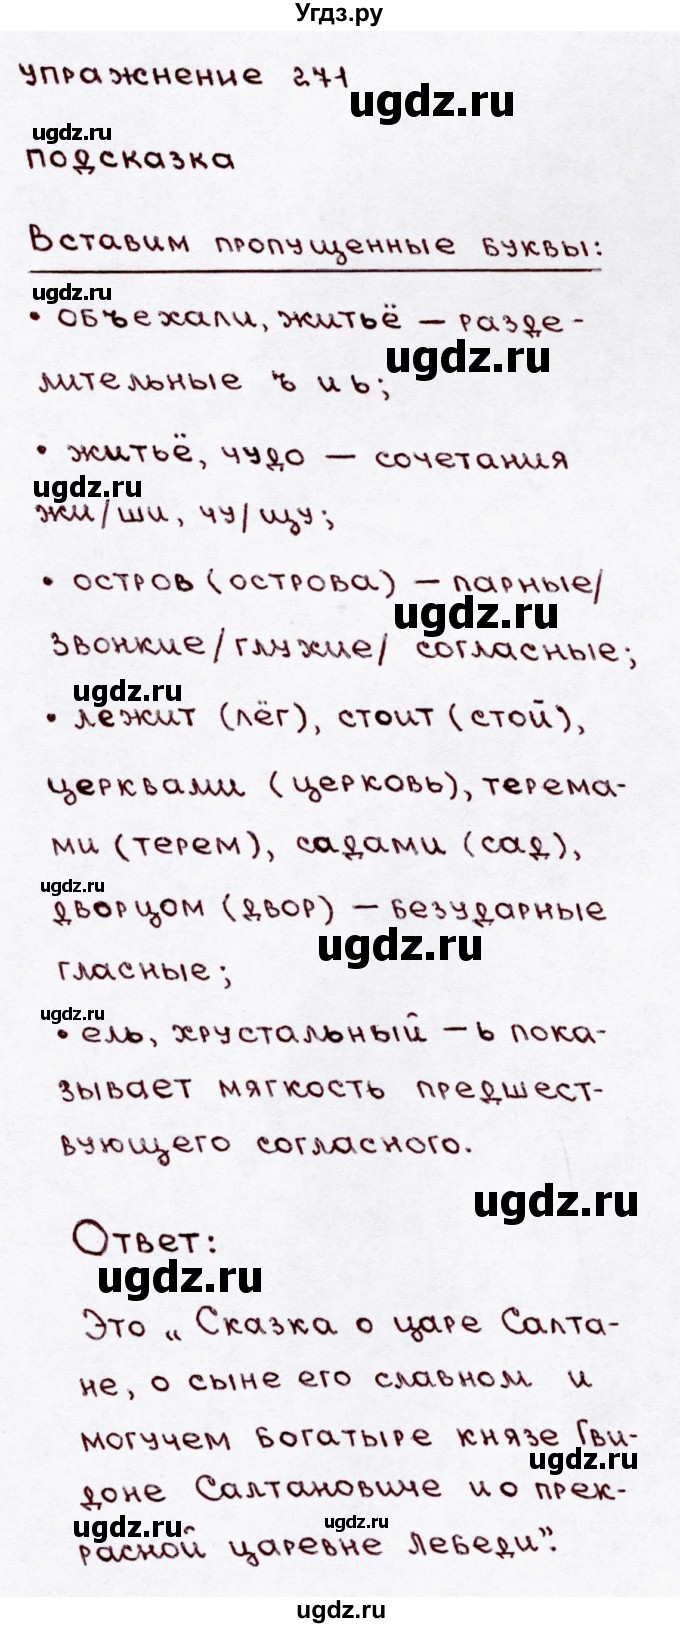 Угдз.ру
упражнение 271
ugdz.ru
ugdz.ru
подсказка
Вставим пропущенные буквы:
ugdz.ru
• объехали, житьё – разде-
ugdz.ru
лительные ъ и ь;
• житьё, чудо – сочетания
ugdz.ru
жи/ши, чу/щу;
• остров (острова) – парные/
ugdz.ru
звонкие/глухие/ согласные;
ugdz.ru
• лежит (лёг), стоит (стой),
церквами (церковь), терема-
ми (терем), садами (сад),
ugdz.ru
дворцом (двор) – безударные
ugdz.ru
гласные;
ugdz.ru
• ель, хрустальный – ь пока-
зывает мягкость предшест-
вующего согласного.
ugdz.ru
Ответ:
ugdz.ru
Это „Сказка о царе Салта-
не, о сыне его славном и
могучем богатыре князе Гви-
ugdz.ru
доне Салтановиче и о прек-
ugdz.ru
ugdz.ru
расной царевне Лебеди”.
ugdz.ru